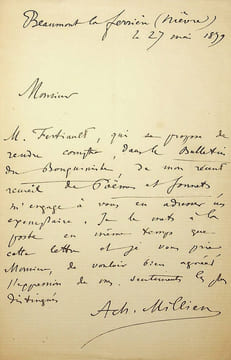 Beaumont la ferrière (Nièvre)
le 27 mai 1879
Monsieur
M. Fertiault, qui se propose de
rendre compte, dans le Bulletin
du Bouquiniste de mon récent
recueil de Poëmes et sonnets
m'engage à vous en adresser un
exemplaire. Je le mets à la
poste en même temps que
cette lettre et je vous prie
Monsieur, de vouloir bien agréer
l'expression de mes sentiments les plus
distingués
Ach. Millien